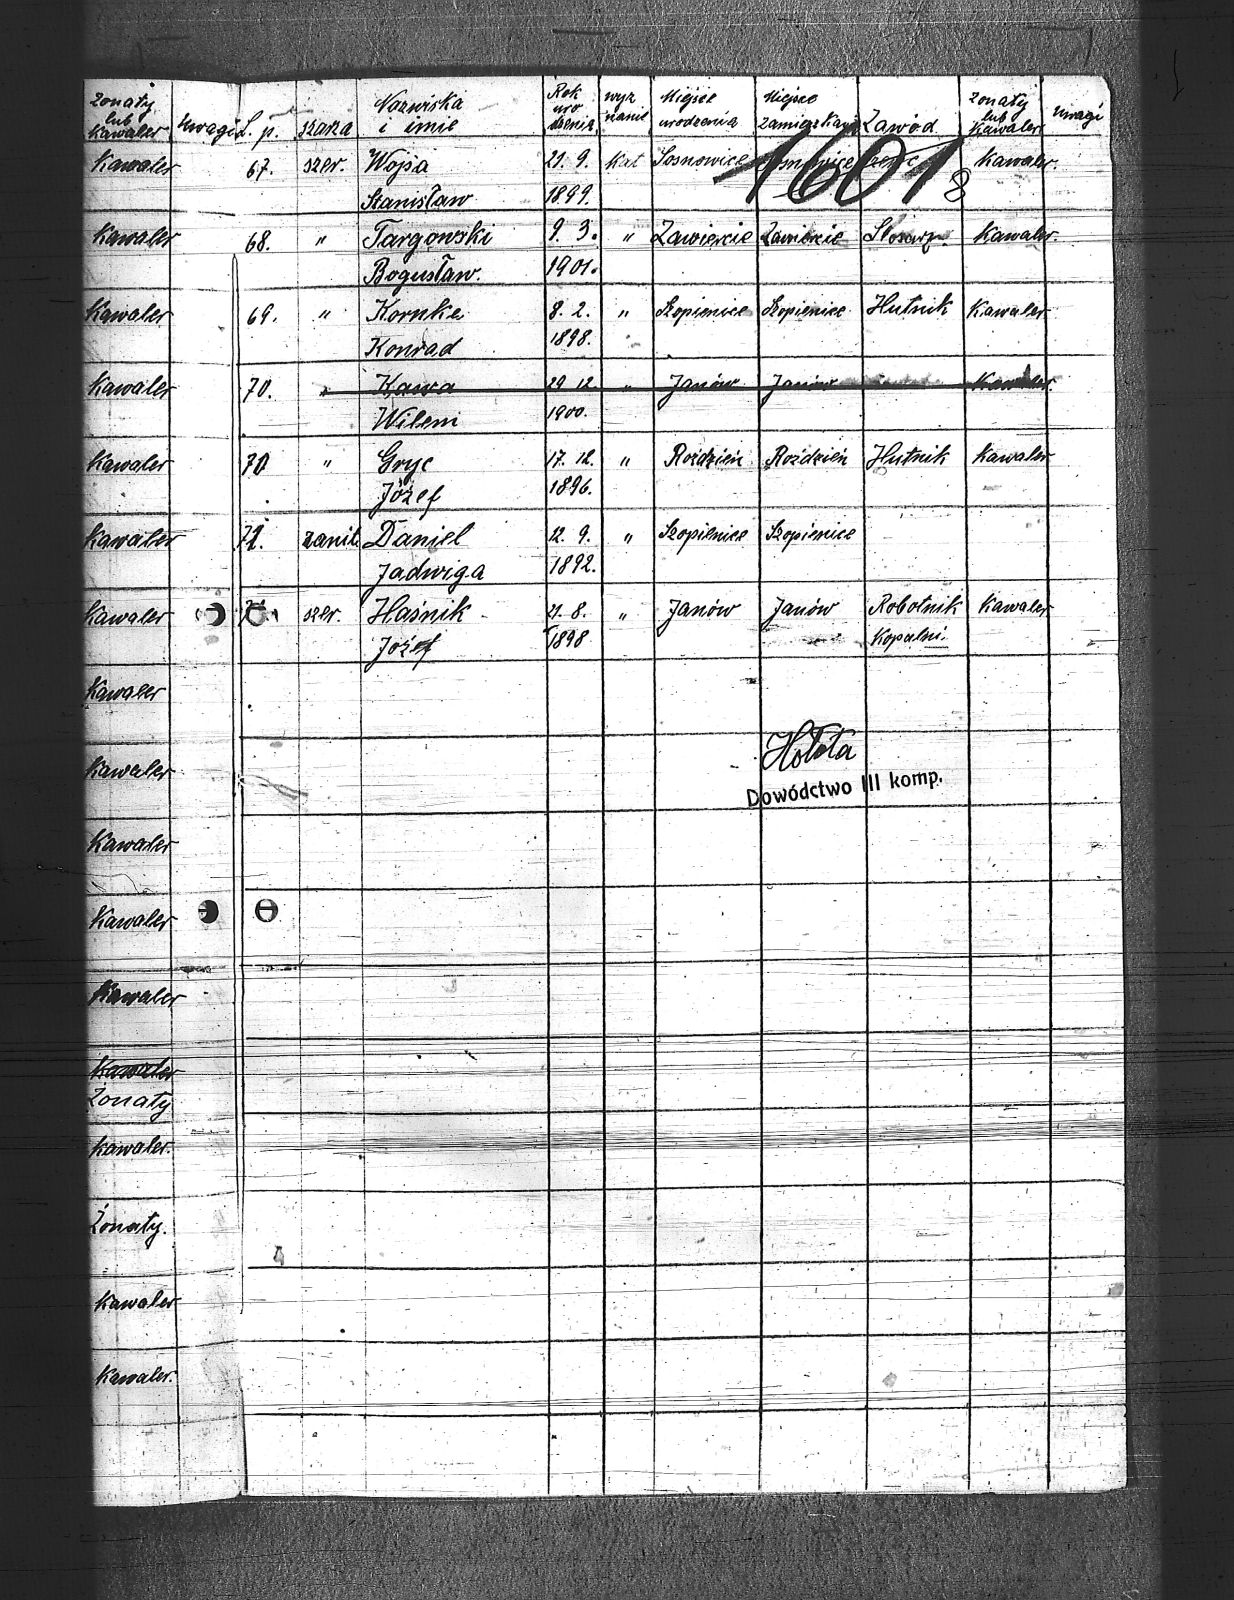 żonaty lub Kawaler uwagi L. p. szarża Nazwiska i imie Rok uro dzenia wyz nanie Miejsce urodzenia Miejsce zamieszkania Zawód żonaty lub Kawaler uwagi
1601 8
Kawaler 67. szer. Wojsa 21. 9. Kat Sosnowice Sosnowice Kawaler.
Stanisław 1899.
Kawaler 68. " Targowski 9. 3. " Zawiercie Zawiercie Ślosarz. Kawaler.
Bogusław. 1901.
Kawaler 69. " Kornke 8. 2. " Szopienice Szopienice Hutnik Kawaler
Konrad 1898.
Kawaler 70. " Kawa 29 12 " Janów Janów Kawaler.
Wilem 1900.
Kawaler 70 " Gryc 17. 12. " Roździeń Roździeń Hutnik Kawaler
Józef 1896.
Kawaler 71. sanit. Daniel 12. 9. " Szopienice Szopienice
Jadwiga 1892.
Kawaler szer. Haśnik 21. 8. " Janów Janów Robotnik Kawaler
Józef 1898 Kopalni.
Kawaler
Hołota
Kawaler Dowództwo III komp.
Kawaler
Kawaler
Kawaler
Kawaler
Żonaty
Kawaler.
Żonaty.
Kawaler
Kawaler.